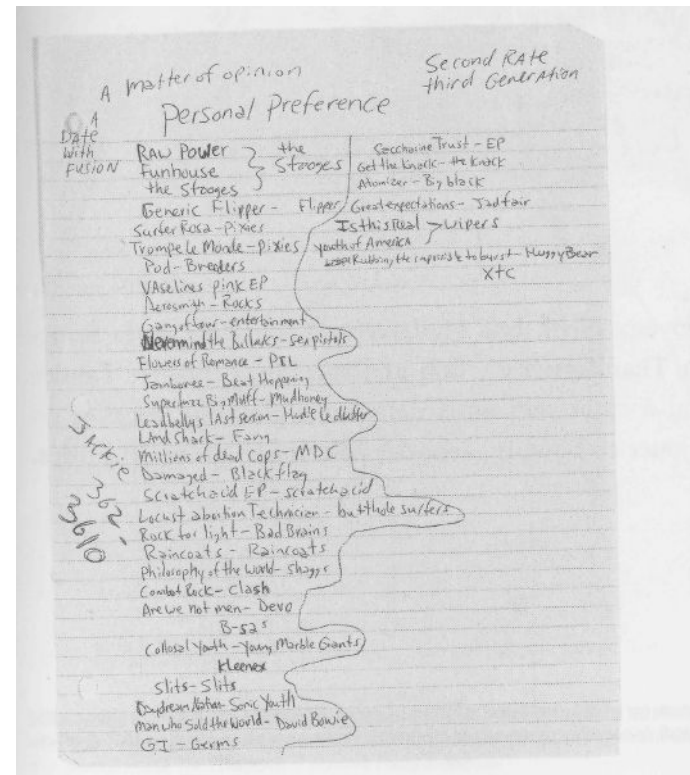 A matter of opinion
Second RAte
third Generation
Personal Preference
A
Date
With
FUSION
RAW POWER
Funhouse
the Stooges
the
Stooges
Generic Flipper - Flipper
Surfer Rosa - Pixies
Trompe le Monde - Pixies
Pod - Breeders
VAselines pink EP
Aerosmith - Rocks
Gang of four - entertainment
Nevermind the Bullaks - sex pistols
Flowers of Romance - PIL
Jamboree - Beat Happening
Superfuzz Big Muff - Mudhoney
Leadbelly's lAst session - Hudie Ledbetter
LAnd shark - Fang
Millions of dead Cops - MDC
Damaged - Black flag
Scratch acid EP - scratch acid
Locust abortion Technician - butthole surfers
Rock for light - Bad Brains
Raincoats - Raincoats
Philosophy of the World - Shaggs
Combat Rock - Clash
Are we not men - Devo
B-52s
Collosal Youth - Young Marble Giants
Kleenex
Slits - Slits
Daydream Nation - Sonic Youth
Man who Sold the World - David Bowie
GI - Germs
Saccharine Trust - EP
Get the knack - the Knack
Atomizer - Big black
Great expectations - Jad fair
Is this Real
Youth of America
wipers
Rubbing the impossible to burst - Huggy Bear
XTC
JACKie
362-
3610